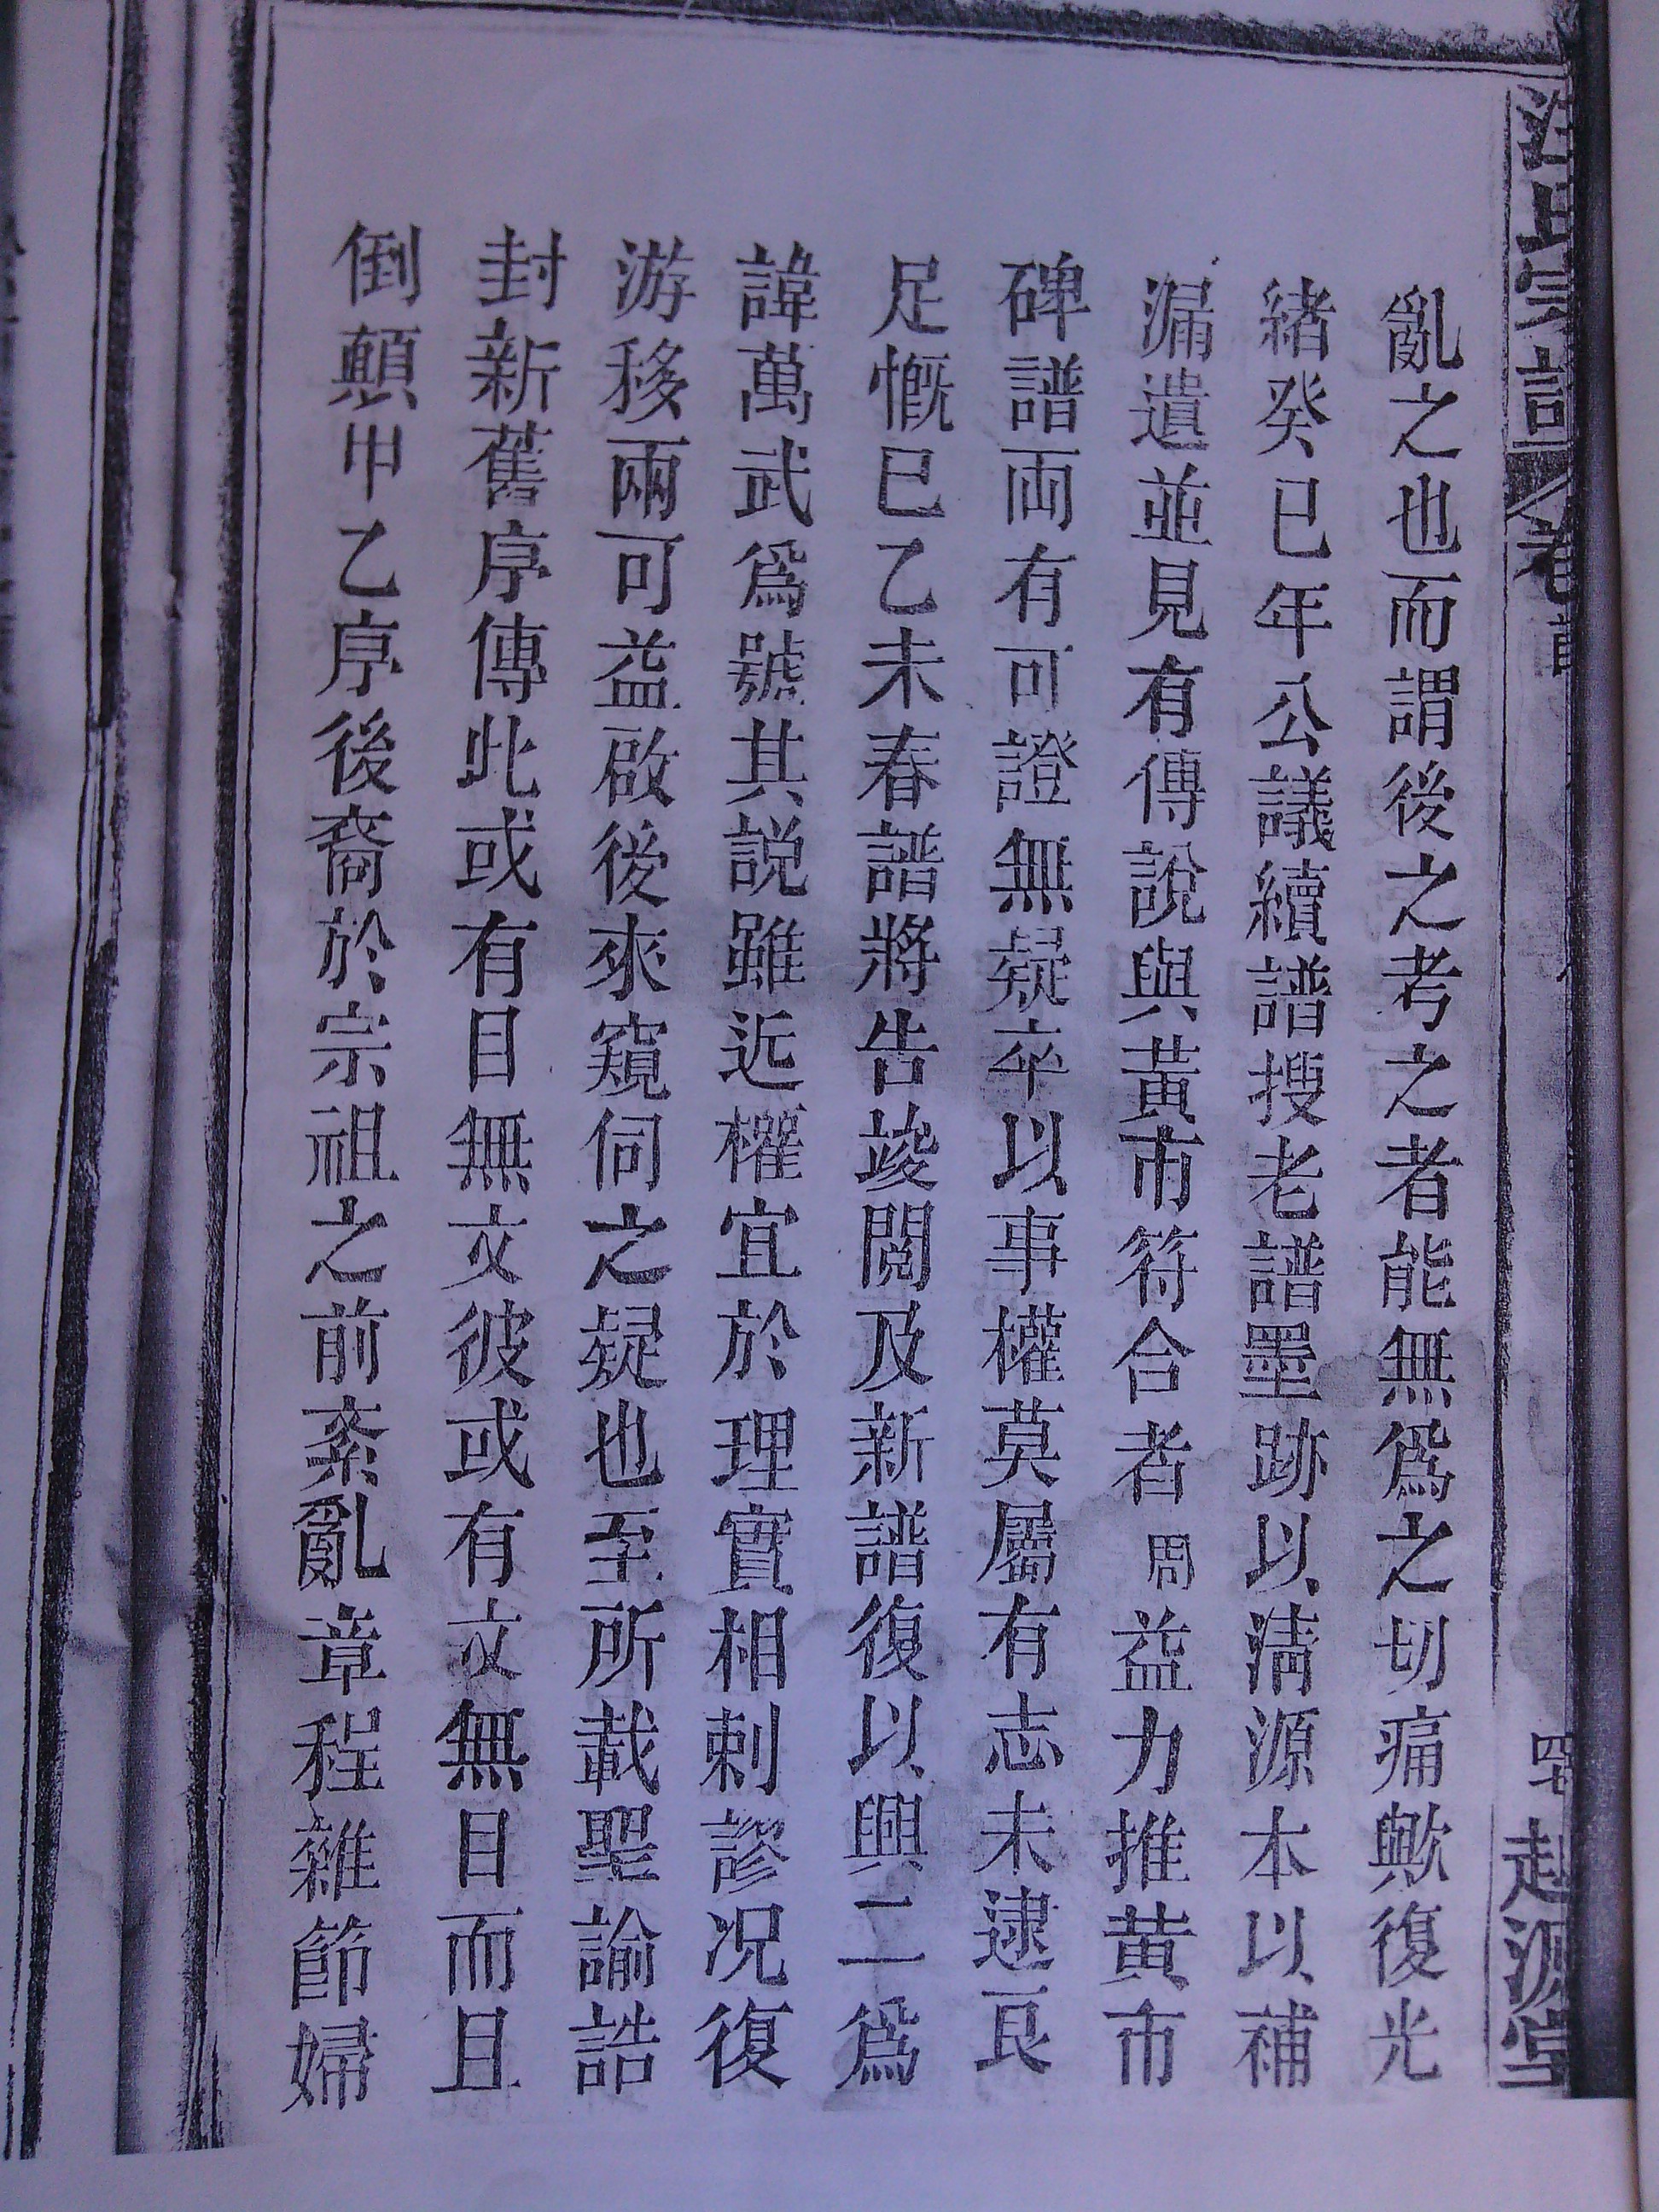 亂之也而謂後之考之者能無爲之切痛歟復光
緒癸巳年公議續譜搜老譜墨跡以清源本以補
漏遺並見有傳說與黃市符合者周益力推黃市
碑譜両有可證無疑卒以事權莫屬有志未逮良
足慨已乙未春譜將告竣閲及新譜復以興二爲
諱萬武爲號其説雖近權宜於理實相刺謬况復
游移兩可益啟後來窺伺之疑也至所載聖諭誥
封新舊序傳此或有目無文彼或有文無目而且
倒顛甲乙序後裔於宗祖之前紊亂章程雜節婦
宗譜
卷
四七
起源堂